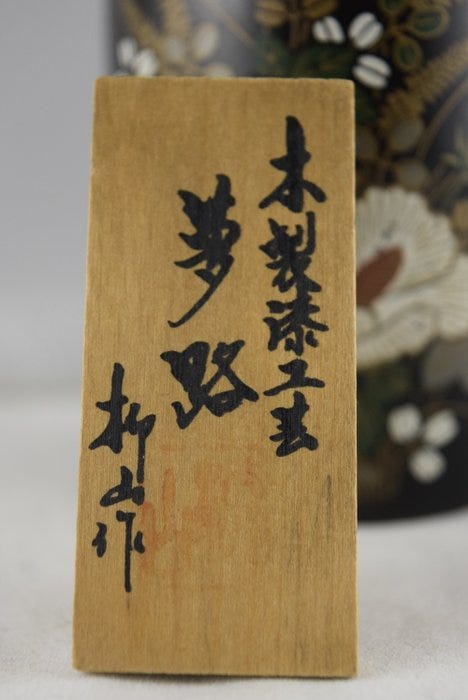 木製漆工芸
夢路
柳山作